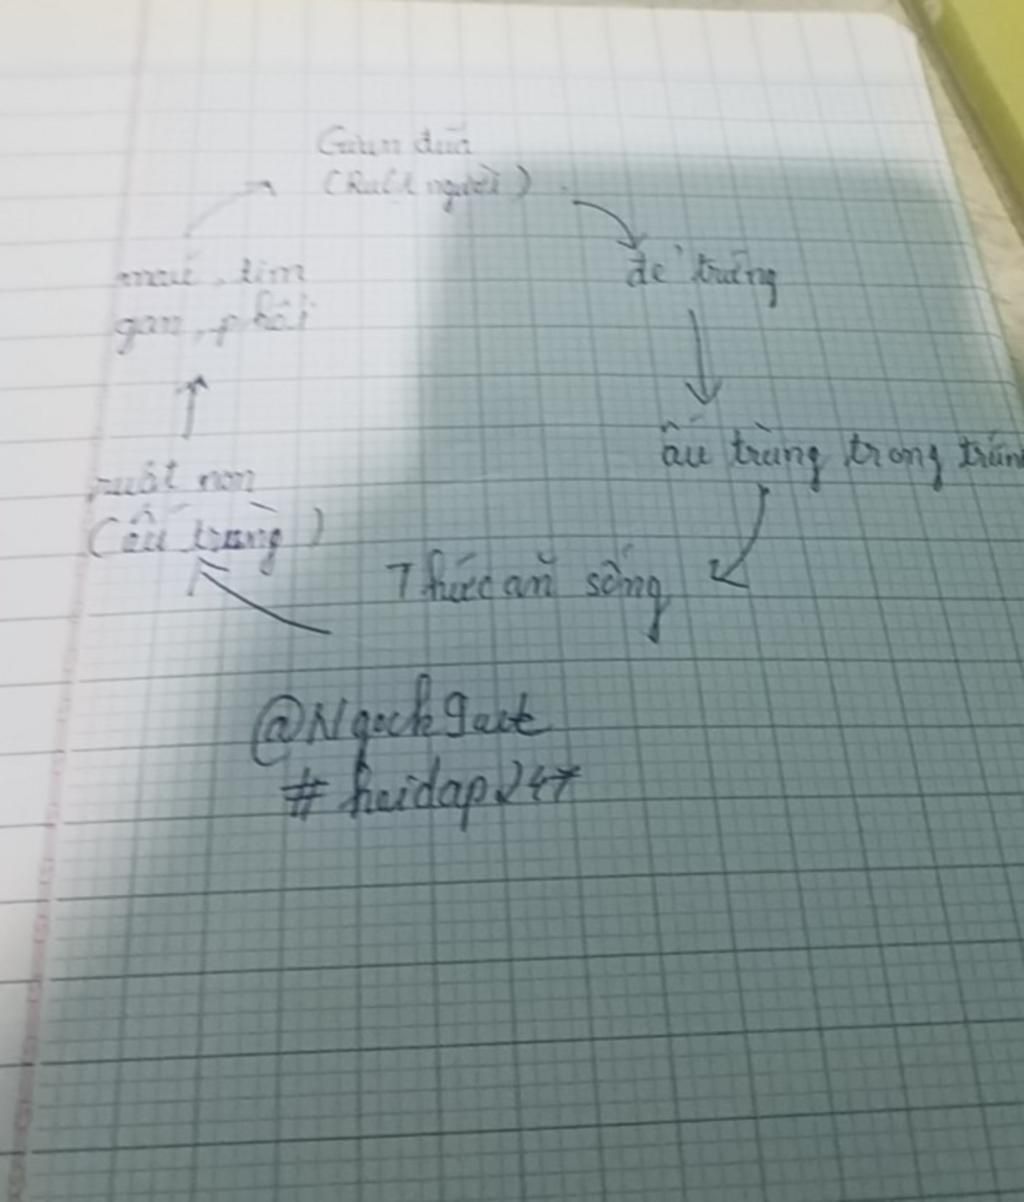 Giun đũa
(Ruột người)
đẻ trứng
ấu trùng trong trứng
Thức ăn sống
ruột non
(ấu trùng)
máu, tim
gan, phổi
#hoidap247